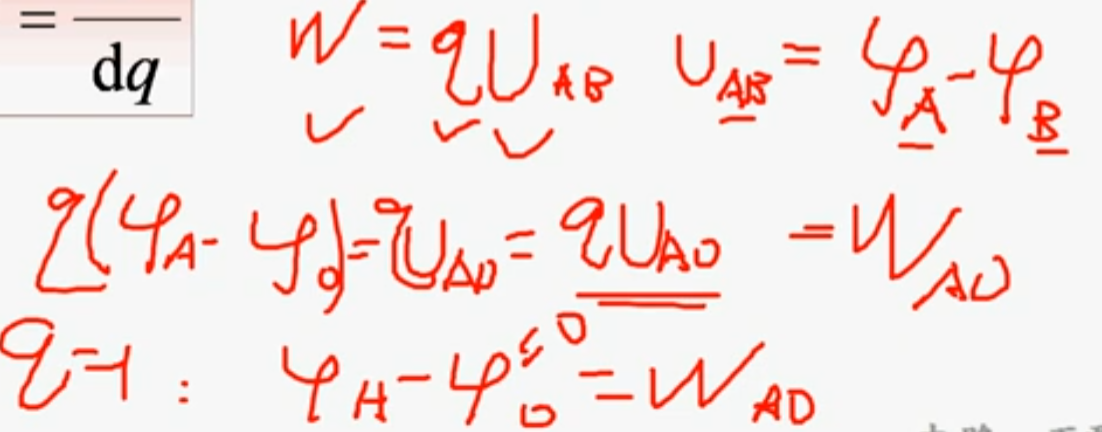 = —— / dq
W = qU_AB U_AB = φ_A - φ_B
q(φ_A - φ_0) = qU_A0 = qU_A0 = W_A0
q=1 : φ_A - φ_0^{=0} = W_A0